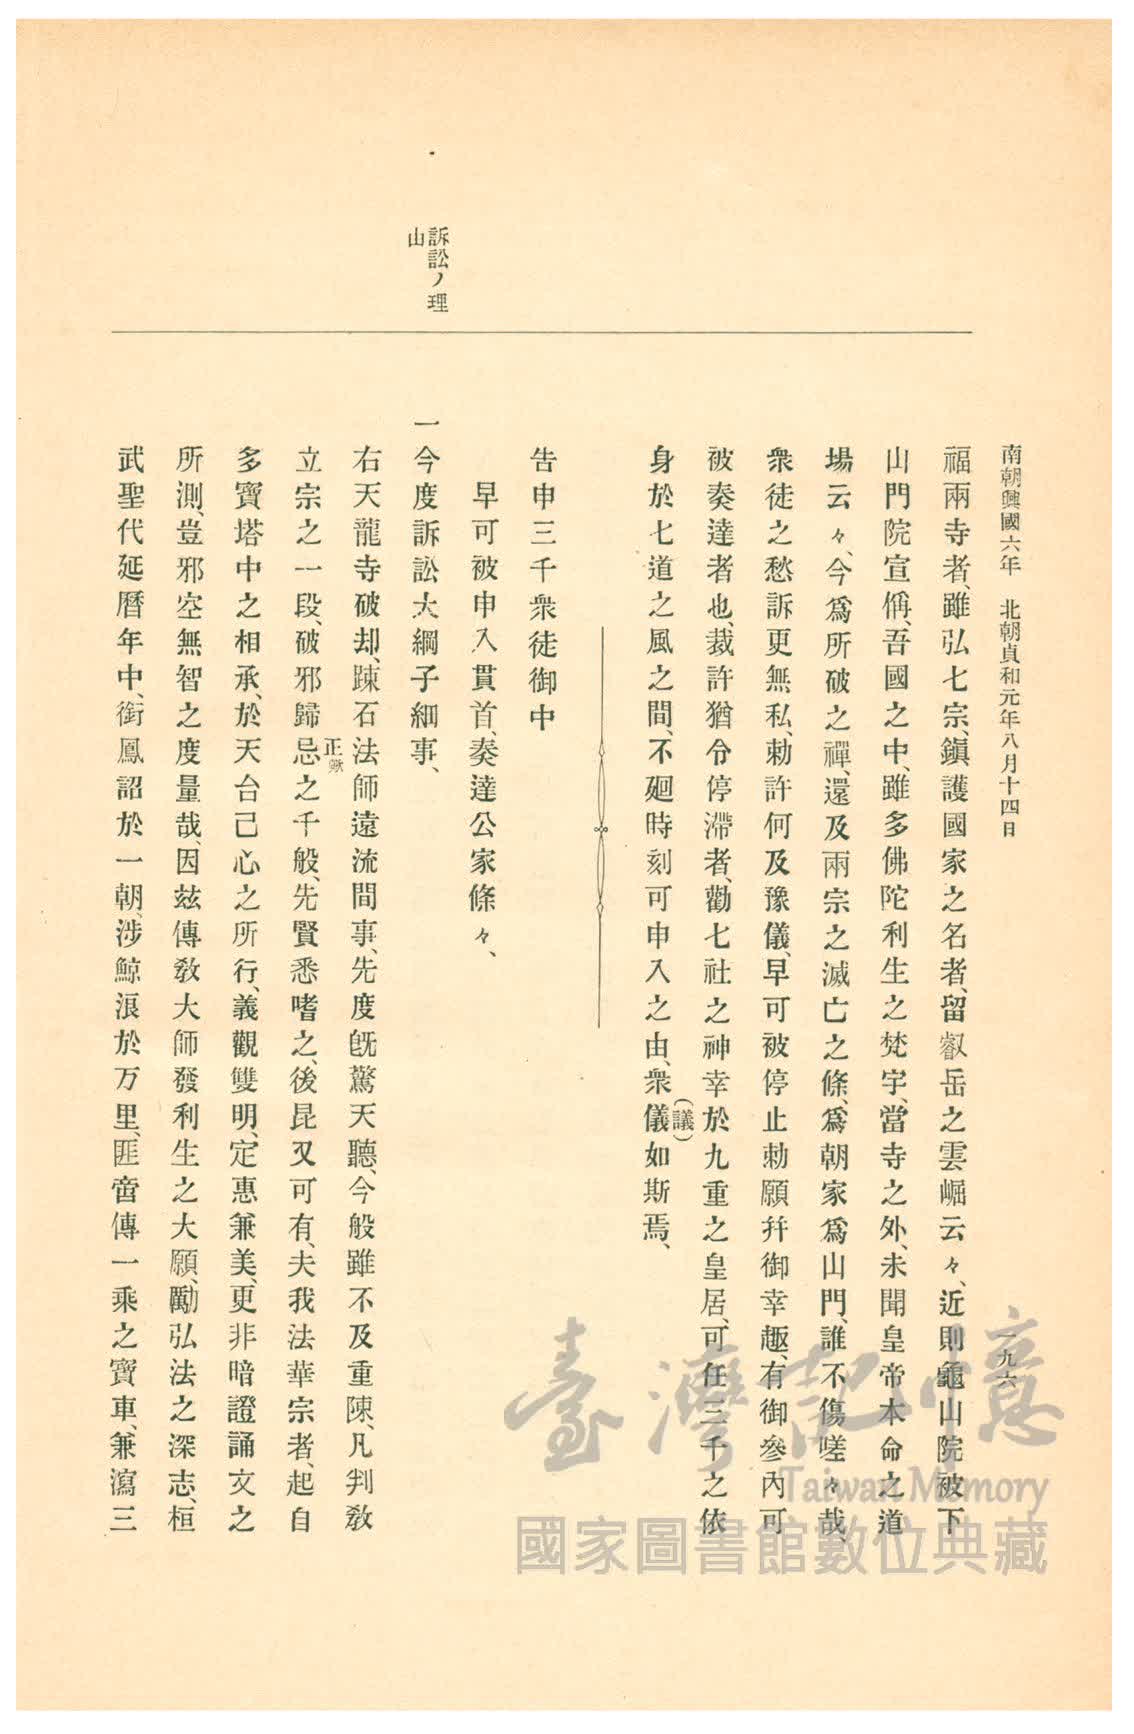 南朝興國六年 北朝貞和元年八月十四日
一九六
福兩寺者、雖弘七宗、鎭護國家之名者、留叡岳之雲崛云々、近則龜山院被下
山門院宣偁、吾國之中、雖多佛陀利生之梵宇、當寺之外、未聞皇帝本命之道
場云々、今爲所破之禪、還及兩宗之滅亡之條、爲朝家爲山門、誰不傷嗟々哉、
衆徒之愁訴更無私、勅許何及豫儀、早可被停止勅願幷御幸趣、有御參內可
被奏達者也、裁許猶令停滯者、勸七社之神幸於九重之皇居、可任三千之依
身於七道之風之間、不廻時刻可申入之由、衆儀(議)如斯焉、
告申三千衆徒御中
早可被申入貫首、奏達公家條々、
訴訟ノ理
山
一今度訴訟大綱子細事、
右天龍寺破却、踈石法師遠流間事、先度旣驚天聽、今般雖不及重陳、凡判敎
立宗之一段、破邪歸忌正歟之千般、先賢悉嗜之、後昆又可有、夫我法華宗者、起自
多寶塔中之相承、於天台己心之所行、義觀雙明、定惠兼美、更非暗證誦文之
所測、豈邪空無智之度量哉、因玆傳敎大師發利生之大願、勵弘法之深志、桓
武聖代延曆年中、銜鳳詔於一朝、涉鯨浪於万里、匪啻傳一乘之寶車、兼瀉三
臺灣記憶
Taiwan Memory
國家圖書館數位典藏